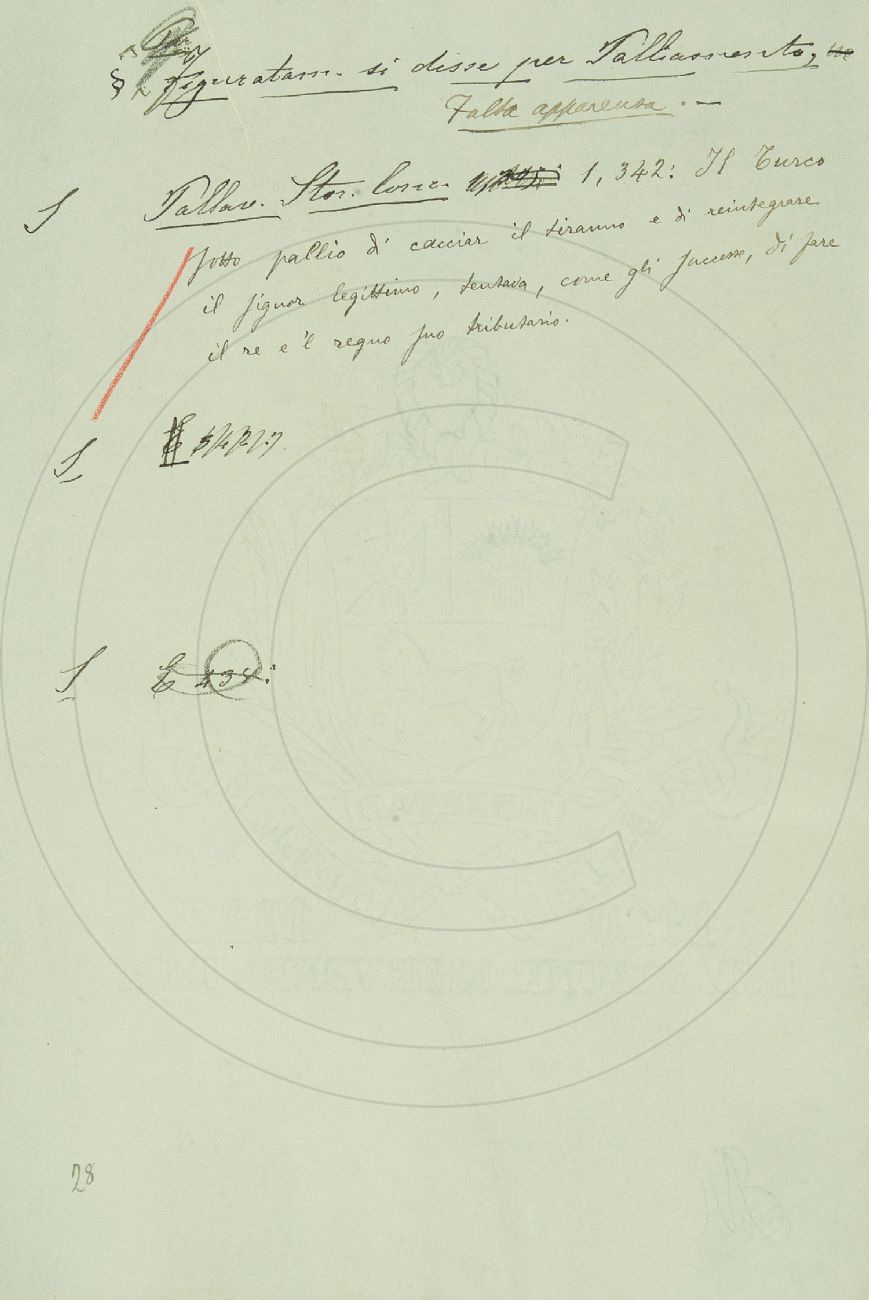 § Figuratam. si disse per Palliamento,
Falsa apparenza. —
S Pallav. Stor. Conc. 1, 342: Il Turco
sotto pallio di cacciar il tiranno e di reintegrare
il signor legittimo, tentava, come gli successe, di fare
il re e 'l regno suo tributario.
S
S E 434:
28